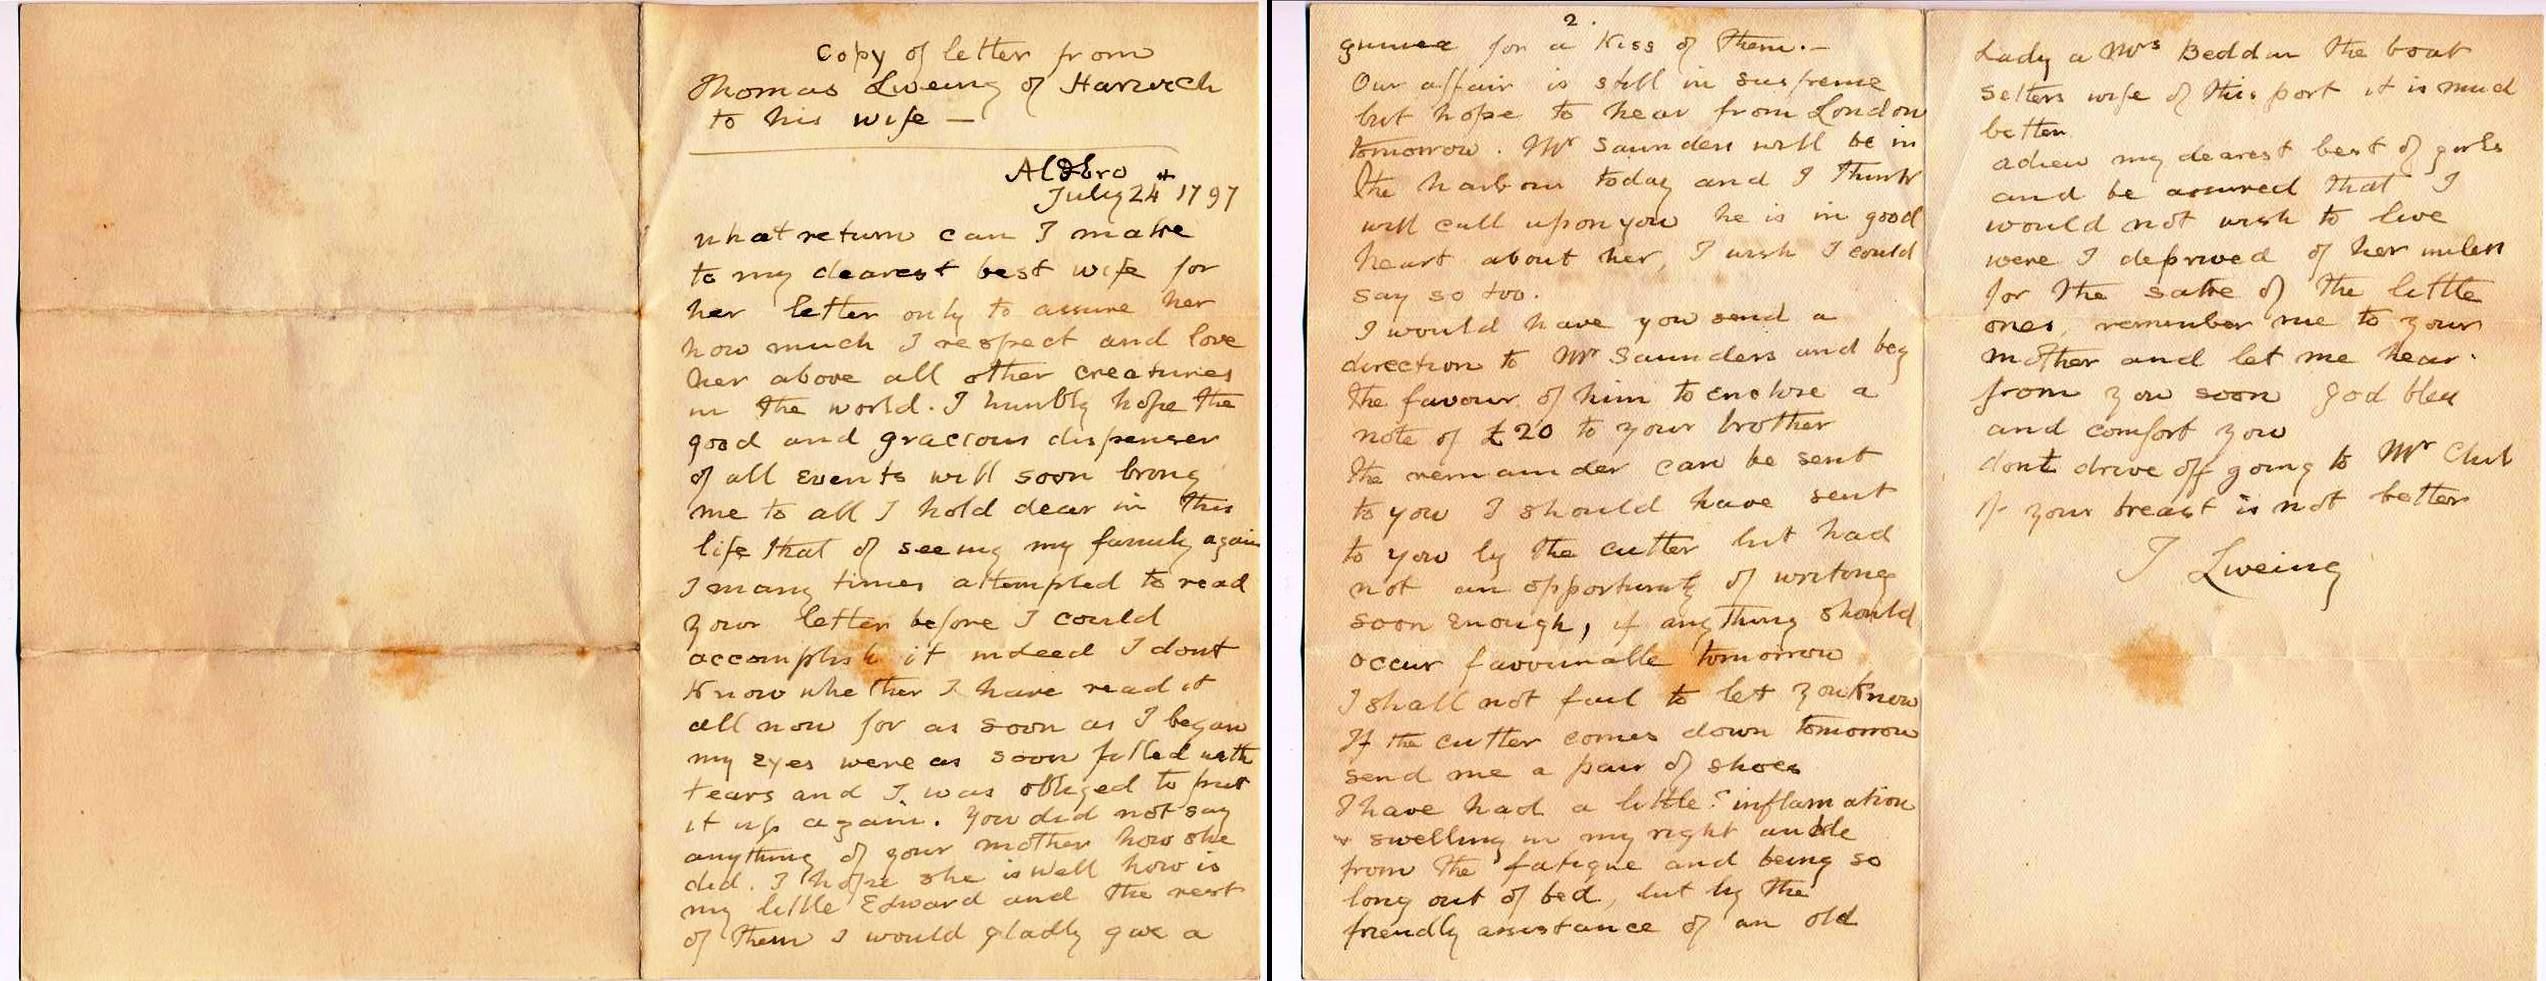 Copy of letter from
Thomas Lweing of Harwich
to his wife —
Aldbro
July 24th 1797
what return can I make
to my dearest best wife for
her letter only to assure her
how much I respect and love
her above all other creatures
in the world. I humbly hope the
good and gracious dispenser
of all Events will soon bring
me to all I hold dear in this
life that of seeing my family again
I many times attempted to read
your letter before I could
accomplish it indeed I dont
Know whether I have read it
all now for as soon as I began
my Eyes were as soon filled with
tears and I was obliged to put
it up again. You did not say
anything of your mother how she
did. I hope she is well how is
my little Edward and the rest
of them I would gladly give a
2.
guinea for a Kiss of them. —
Our affair is still in suspense
but hope to hear from London
tomorrow. Mr Saunders will be in
the harbour today and I think
will call upon you he is in good
heart about her, I wish I could
say so too.
I would have you send a
direction to Mr Saunders and beg
the favour of him to enclose a
note of £20 to your brother
the remainder can be sent
to you I should have sent
to you by the cutter but had
not an opportunity of writing
soon Enough, if anything should
occur favourable tomorrow
I shall not fail to let you Know
If the cutter comes down tomorrow
send me a pair of shoes
I have had a little inflamation
& swelling in my right ankle
from the fatigue and being so
long out of bed, but by the
friendly assistance of an old
Lady a Mrs Beddan the boat
setters wife of this port it is much
better
adieu my dearest best of girls
and be assured that I
would not wish to live
were I deprived of her unless
for the sake of the little
ones, remember me to your
mother and let me hear
from you soon God bless
and comfort you
dont drive off going to Mr Club
If your breast is not better
T Lweing